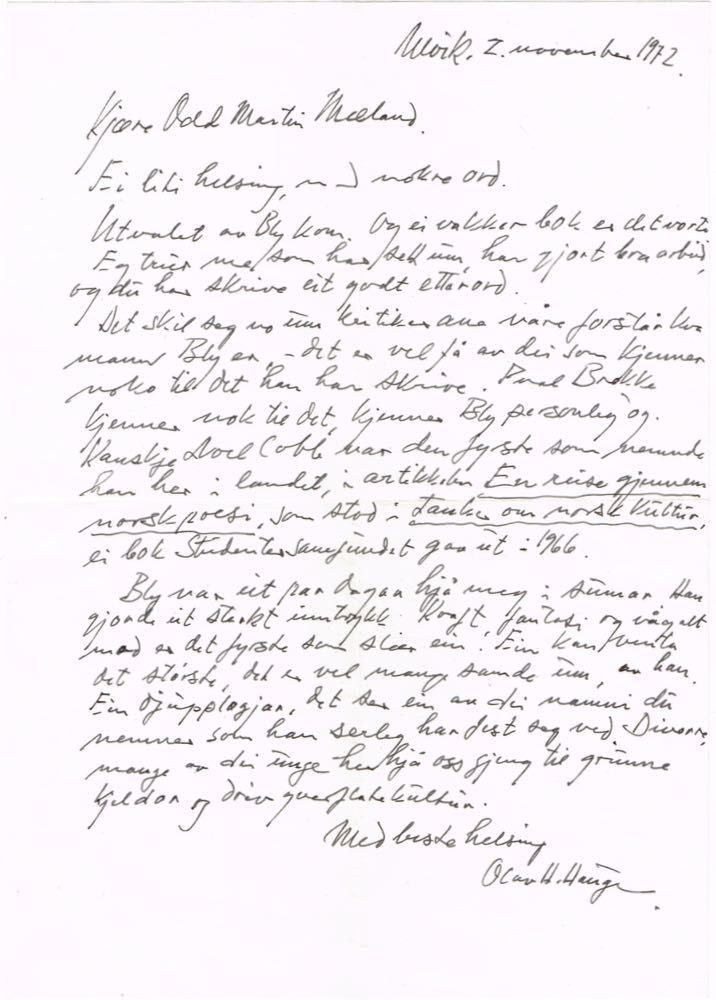 Ulvik. 2. november 1972.
Kjære Odd Martin Mæland.
Ei liti helsing, med nokre ord.
Utvalet av Bly kom. Og ei vakker bok er det vorti
Eg trur me som har sett um, har gjort bra arbeid,
og du har skrive eit godt etterord.
Det skil seg no um kritikarane våre forstår kva
mann Bly er, – det er vel få av dei som kjenner
noko til det han har skrive. Paal Brekke
kjenner nok til det, kjenner Bly personleg og.
Kanskje Noel Cobb var den fyrste som nemnde
han her i landet, i artikkelen En reise gjennem
norsk poesi, som stod i Tanker om norsk kultur,
ei bok Studentersamfundet gav ut i 1966.
Bly var eit par dagar hjå meg i sumar. Han
gjorde eit sterkt inntrykk. Kraft, fantasi og vågalt
mod er det fyrste som slær ein. Ein kan venta
det største, det er vel mange samde um, av han.
Ein djupplogjar, det ser ein av dei namni du
nemner som han serleg har fest seg ved. Diverre,
mange av dei unge her hjå oss gjeng til grunne
kjeldor og driv yverflatekultur.
Med beste helsing
Olav H. Hauge